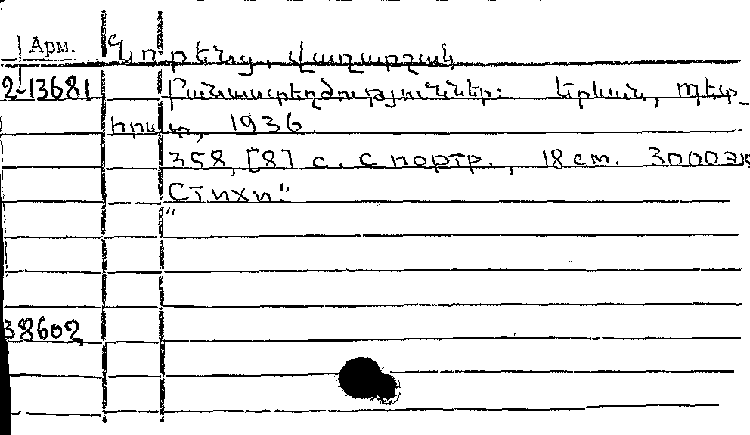 Арм. Նորենց, Վաղարշակ
2-13681 Բանաստեղծություններ: Երևան, Պետ-
հրատ, 1936
358, [8] с. с портр., 18 cm. 3000 эк
"Стихи"
38602